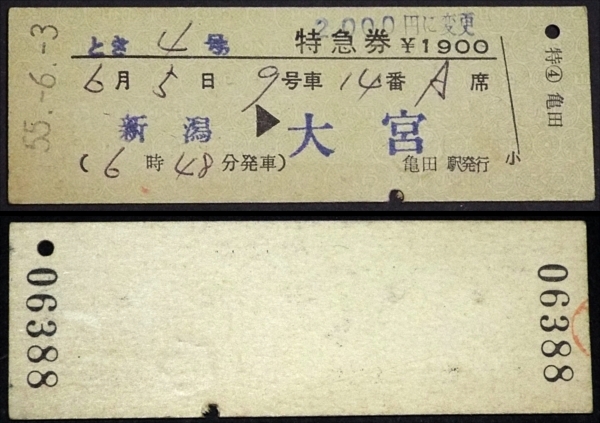 2,000円に変更
とき 4 号
特急券 ¥1900
6月 5日 9号車 14番 A席
新潟 ▶ 大宮
(6時48分発車)
亀田 駅発行
小
特④ 亀田
55.-6.-3
06388
06388